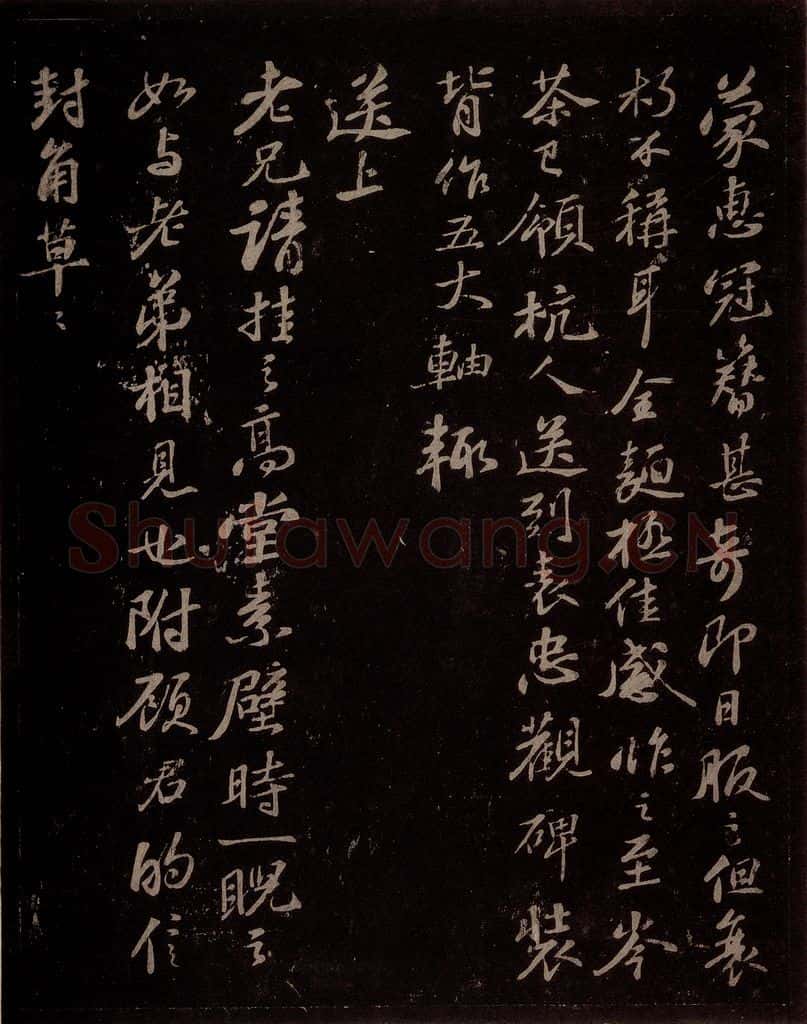 蒙惠冠簪甚奇即日服之但衰
朽不稱耳全麵極佳感怍之至岑
茶已領杭人送到表忠觀碑裝
背作五大軸輒
送上
老兄請挂之高堂素壁時一睨之
如与老弟相見也附顾君的信
封角草〻
Shufawang.CN